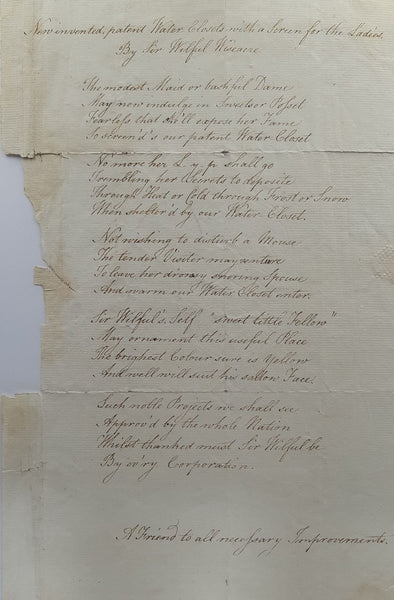 New invented, patent Water Closets with a Screen for the Ladies,
By Sir Wilful Wiseacre.
The modest Maid or bashful Dame
May now indulge in Sweets or Posset
Fearless that she'll expose her Fame
So screen'd's our patent Water Closet
No more her L-y-p shall go
Trembling her Secrets to deposite
Through Heat or Cold through Frost or Snow
When shelter'd by our Water Closet.
Not wishing to disturb a Mouse
The tender Visiter may venture
To leave her drowsy snoring Spouse
And swarm our Water Closet enter.
Sir Wilful's Self "sweet little Fellow"
May ornament this useful Place
The brighest Colour sure is Yellow
And well will suit his sallow Face.
Such noble Projects we shall see
Approv'd by the whole Nation
Whilst thanked must Sir Wilful be
By ev'ry Corporation.
A Friend to all necessary Improvements.